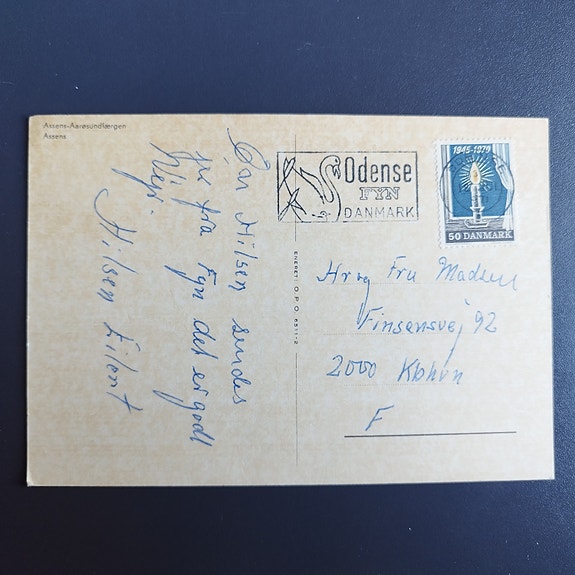 Assens-Aarøsundfærgen
Assens
En Hilsen sendes
jer fra Fyn det er godt
Vejr.
Hilsen Eilert
ENERET: O.P.O. 6511-2
Odense
FYN
DANMARK
1945-1970
50 DANMARK
Hr og Fru Madsen
Finsensvej 92
2000 Kbhvn
F